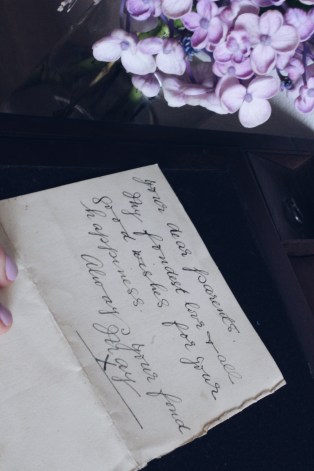 your dear parents.
My fondest love & all
good wishes for your
happiness.
Always your fond